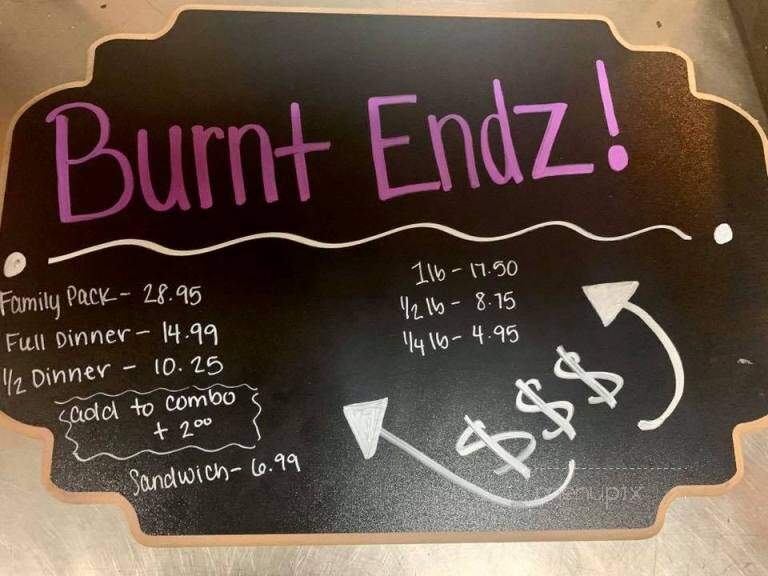 Burnt Endz!
Family Pack - 28.95
Full Dinner - 14.99
1/2 Dinner - 10.25
add to combo
+ 2⁰⁰
Sandwich - 6.99
1lb - 17.50
1/2 lb - 8.75
1/4 lb - 4.95
$$$
menupix